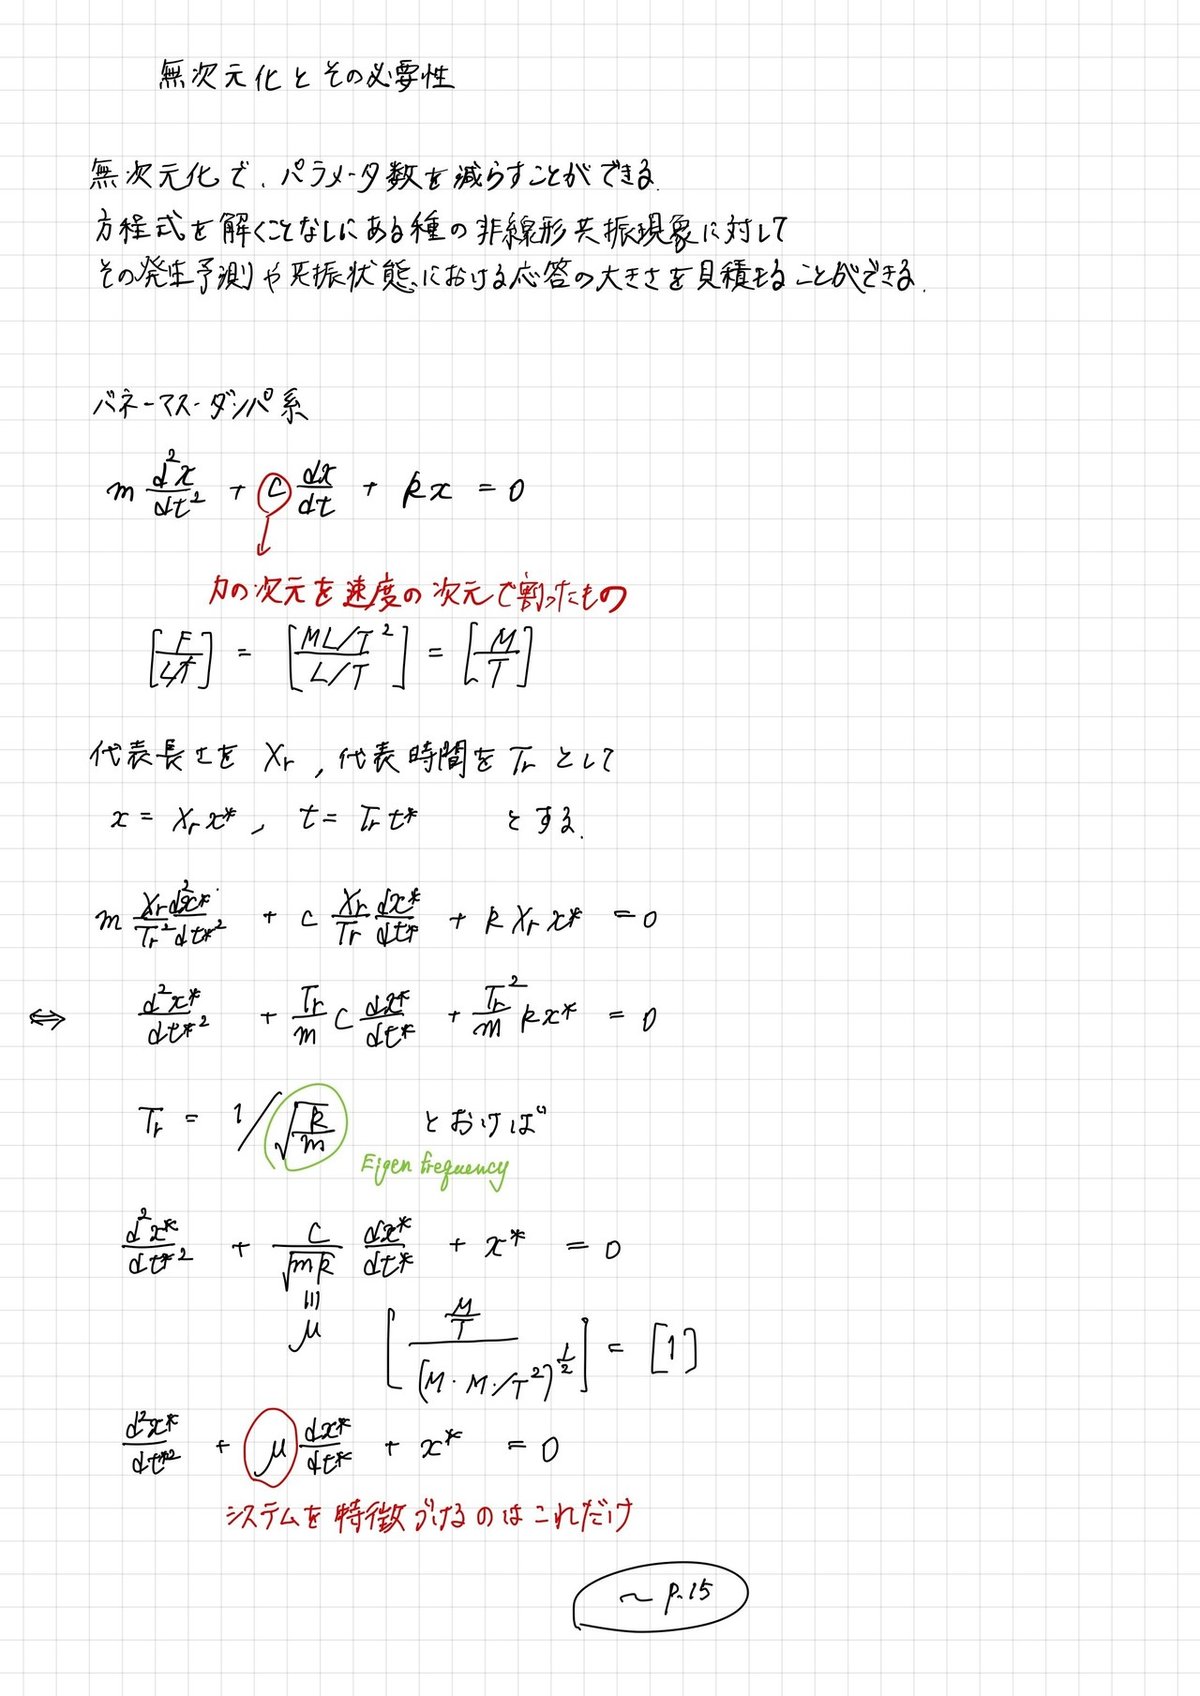 無次元化とその必要性
無次元化で、パラメータ数を減らすことができる.
方程式を解くことなしにある種の非線形共振現象に対して
その発生予測や共振状態における応答の大きさを見積もることができる.
バネ-マス-ダンパ系
m d²x/dt² + c dx/dt + kx = 0
力の次元を速度の次元で割ったもの
[F/(L/T)] = [(ML/T²)/(L/T)] = [M/T]
代表長さを Xr , 代表時間を Tr として
x = Xr x* , t = Tr t* とする.
m (Xr d²x*)/(Tr² dt*²) + c (Xr/Tr) dx*/dt* + k Xr x* = 0
⇔ d²x*/dt*² + (Tr/m) c dx*/dt* + (Tr²/m) kx* = 0
Tr = 1/√(k/m) とおけば
Eigen frequency
d²x*/dt*² + (c/√(mk)) dx*/dt* + x* = 0
≡
μ [(M/T)/(M・M・/T²)^(1/2)] = [1]
d²x*/dt*² + μ dx*/dt* + x* = 0
システムを特徴づけるのはこれだけ
~ p.15